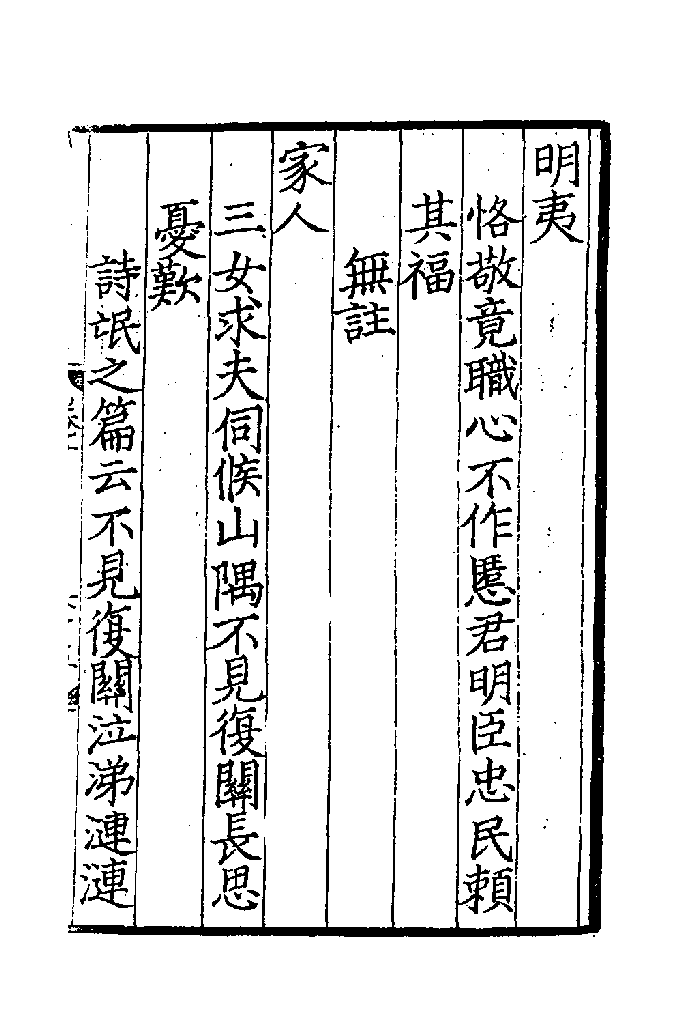 明夷
恪敬竟職心不作慝君明臣忠民頼
其福
無註
家人
三女求夫伺候山隅不見復關長思
憂歎
詩氓之篇云不見復關泣涕漣漣